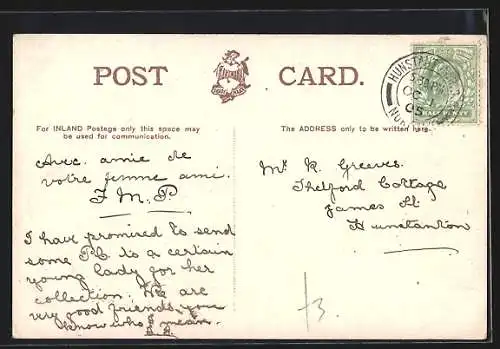 POST CARD.
For INLAND Postage only this space may
be used for communication.
The ADDRESS only to be written here.
HALFPENNY
HUNSTANTON
OC 1
05
Avec amie de
votre femme ami.
F. M. P.
I have promised to send
some P.C. to a certain
young lady for her
collection. We are
very good friends you
know who I mean.
Mr R. Greeves.
Thetford Cottage
James St.
Hunstanton
f3.